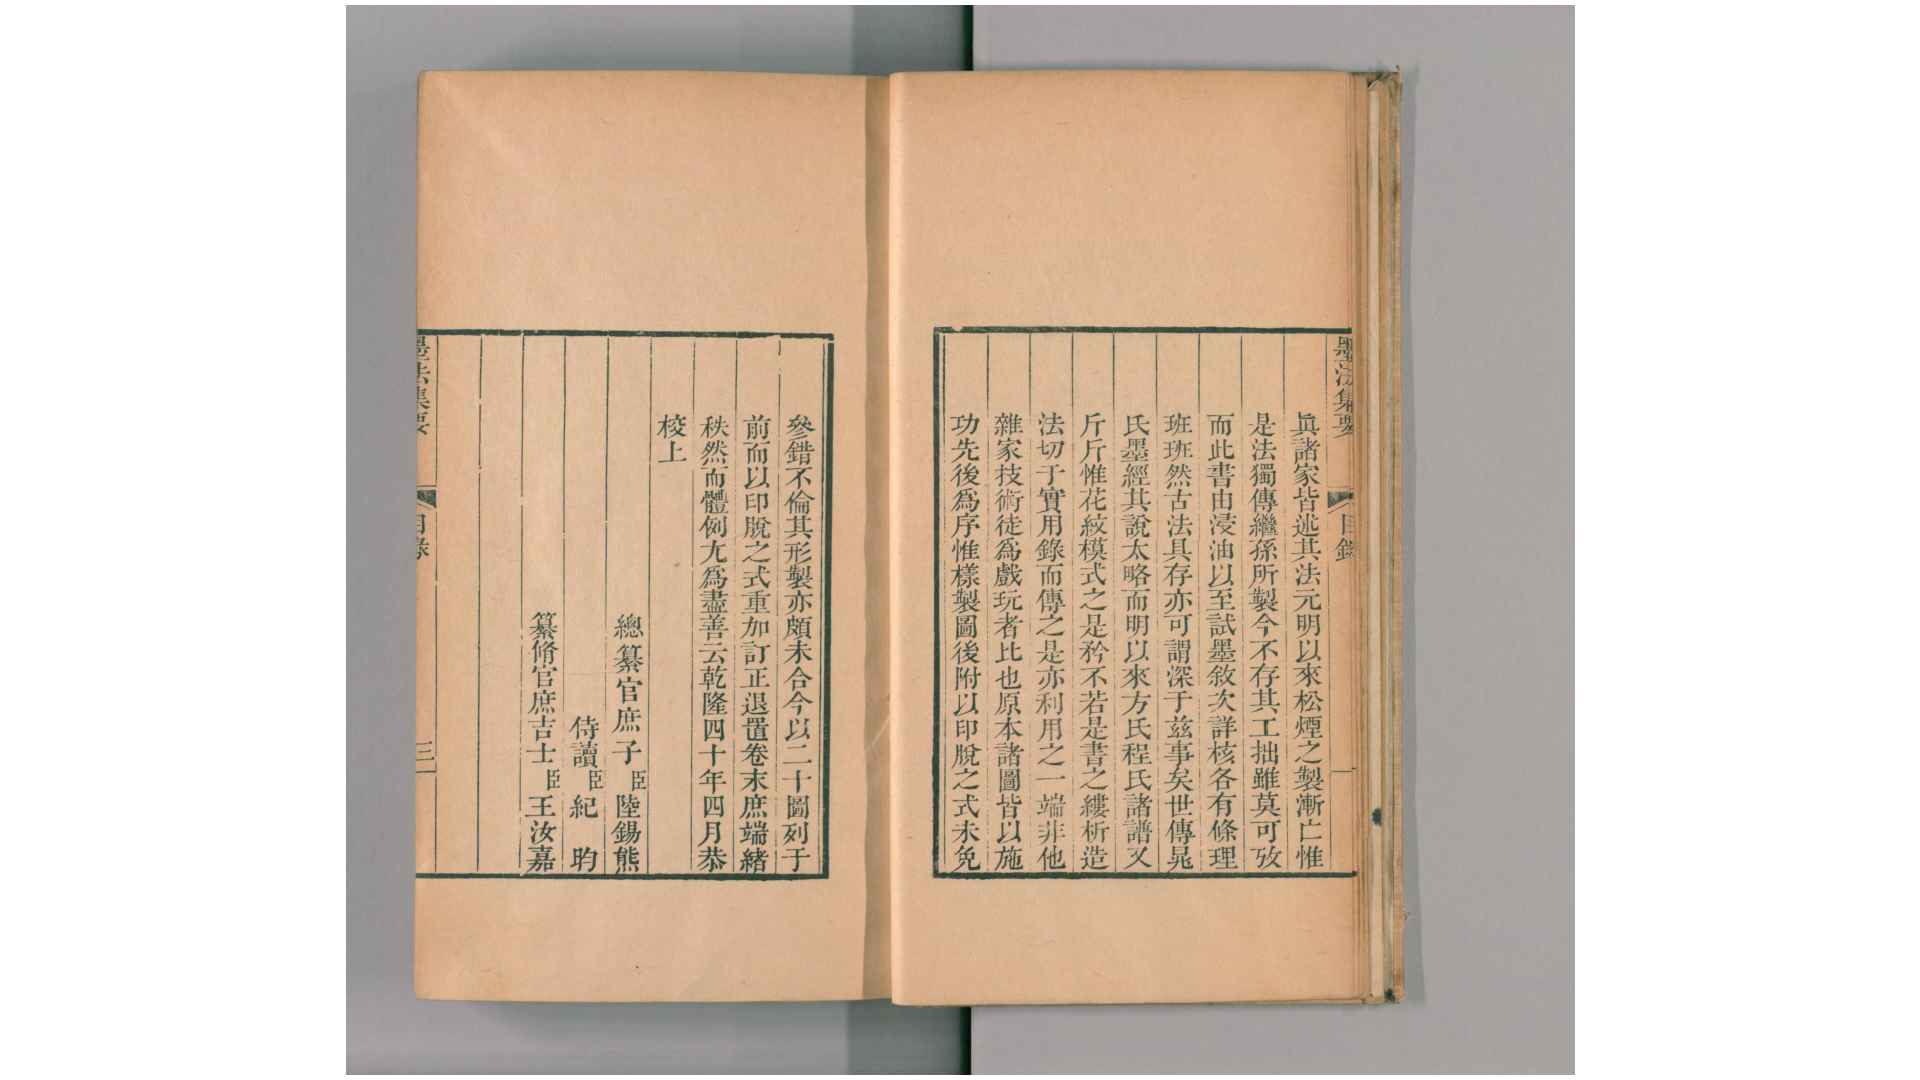 墨法集要 目錄 一
眞諸家皆述其法元明以來松煙之製漸亡惟
是法獨傳繼孫所製今不存其工拙雖莫可攷
而此書由浸油以至試墨敘次詳核各有條理
班班然古法具存亦可謂深于兹事矣世傳晁
氏墨經其說太略而明以來方氏程氏諸譜又
斤斤惟花紋模式之是矜不若是書之縷析造
法切于實用錄而傳之是亦利用之一端非他
雜家技術徒爲戲玩者比也原本諸圖皆以施
功先後爲序惟樣製圖後附以印脫之式未免
參錯不倫其形製亦頗未合今以二十圖列于
前而以印脫之式重加訂正退置卷末庶端緒
秩然而體例尢爲盡善云乾隆四十年四月恭
校上
總纂官庶子臣陸錫熊
侍讀臣紀昀
纂脩官庶吉士臣王汝嘉
墨法集要 目錄 三